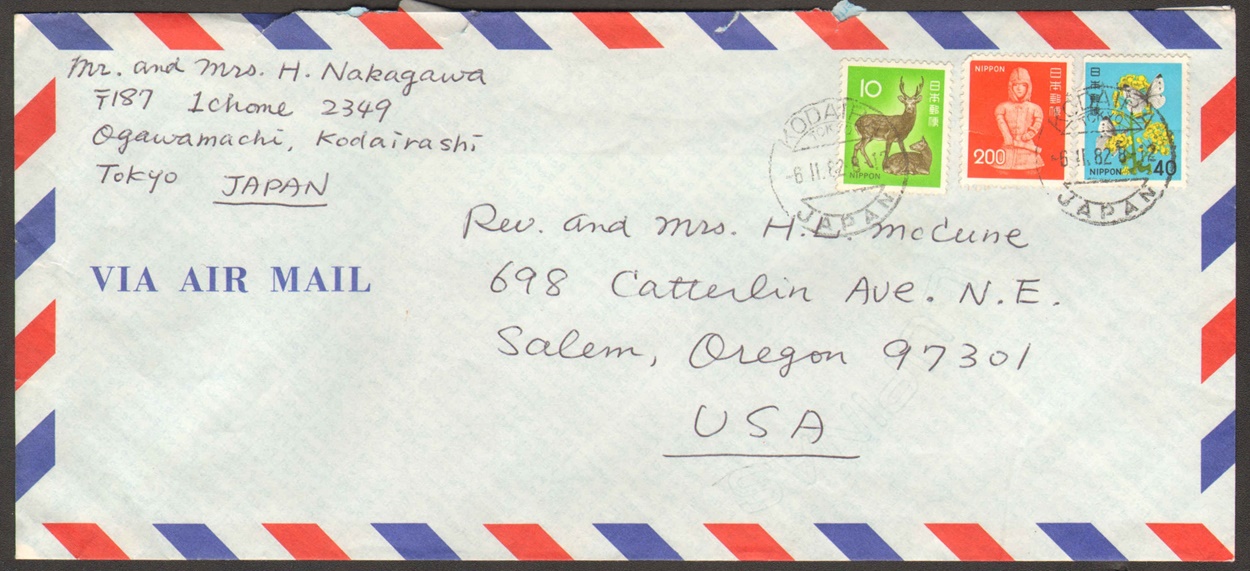 Mr. and Mrs. H. Nakagawa
〒187 1chome 2349
Ogawamachi, Kodairashi
Tokyo JAPAN
VIA AIR MAIL
10
日本郵便
NIPPON
NIPPON
日本郵便
200
日本郵便
NIPPON
40
KODAIRA
TOKYO
-6 II. 82
JAPAN
KODAIRA
TOKYO
-6 II. 82
JAPAN
Rev. and Mrs. H.L. McCune
698 Catterlin Ave. N.E.
Salem, Oregon 97301
USA